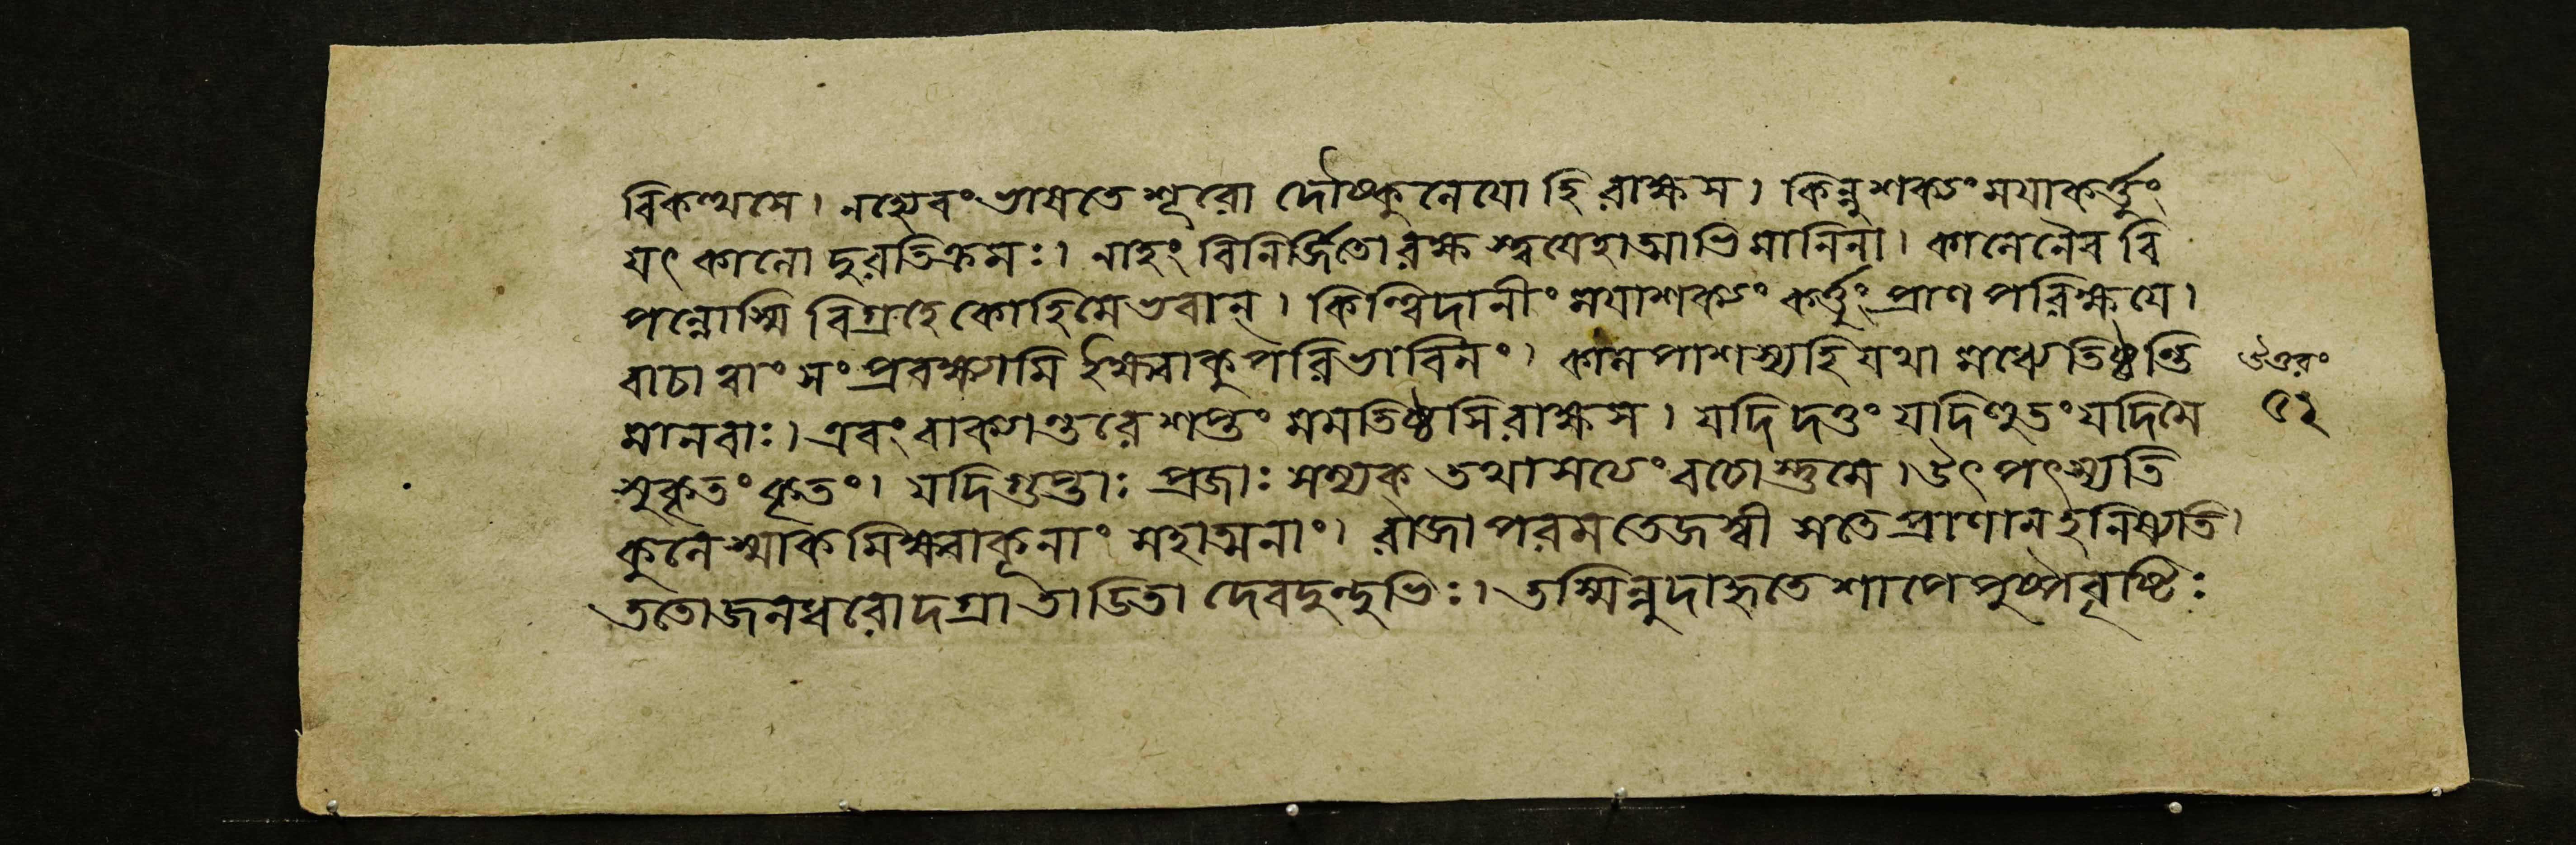 বিকত্থসে। নহ্যেবং ভাষতে শূরো দৌষ্কুলেযো হি রাক্ষস। কিন্নু শক্যং মযা কর্ত্তুং
যৎ কালো দুরতিক্রমঃ। নাহং বিনির্জিতো রক্ষ স্ত্বযেহাত্মাভিমানিনা। কালেনৈব বি
পন্নোস্মি বিগ্রহে কোহি মে ভবান্। কিন্ত্বিদানীং মযা শক্যং কর্ত্তুং প্রাণ পরিক্ষযে।
বাচা ত্বাং সং প্রবক্ষ্যামি ইক্ষ্বাকু পরিভাবিনং। কাল পাশস্যহি যথা মধ্যে তিষ্ঠন্তি
মানবাঃ। এবং বাক্যান্তরে শপ্তুং মম তিষ্ঠসি রাক্ষস। যদি দত্তং যদি হুতং যদি মে
সুকৃতং কৃতং। যদি গুপ্তাঃ প্রজাঃ সম্যক্ তথা সত্যং বচোস্তু মে। উৎপৎস্যতি
কুলেস্মাকমিক্ষ্বাকূনাং মহাত্মনাং। রাজা পরমতেজস্বী সতে প্রাণান্ হনিষ্যতি।
ততো জলধরোদগ্রা তাডিতা দেবদুন্দুভিঃ। তস্মিন্নুদাহৃতে শাপে পুষ্পবৃষ্টিঃ
উত্তরং
৫২